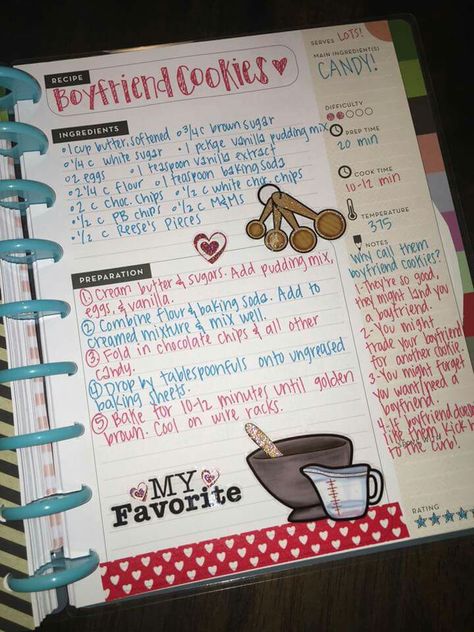 RECIPE
Boyfriend Cookies
INGREDIENTS
•1 cup butter, softened •3/4 c brown sugar
•1/4 c white sugar •1 pckge vanilla pudding mix
•2 eggs •1 teaspoon vanilla extract
•2 1/4 c flour •1 teaspoon baking soda
•2 c choc. chips •1/2 c white choc. chips
•1/2 c PB chips •1/2 c M&Ms
•1/2 c Reese's Pieces
PREPARATION
① Cream butter & sugars. Add pudding mix,
eggs, & vanilla.
② Combine flour & baking soda. Add to
creamed mixture & mix well.
③ Fold in chocolate chips & all other
candy.
④ Drop by tablespoonfuls onto ungreased
baking sheets.
⑤ Bake for 10-12 minutes until golden
brown. Cool on wire racks.
MY
Favorite
SERVES LOTS!
MAIN INGREDIENT(S)
CANDY!
DIFFICULTY
PREP TIME
20 min
COOK TIME
10-12 min
TEMPERATURE
375
NOTES
Why call them
boyfriend cookies?
1-They're so good,
they might land you
a boyfriend.
2-You might
trade your boyfriend
for another cookie
3-You might forget
you want/need a
boyfriend.
4-If boyfriend doesn't
like them, kick him
to the curb!
RATING